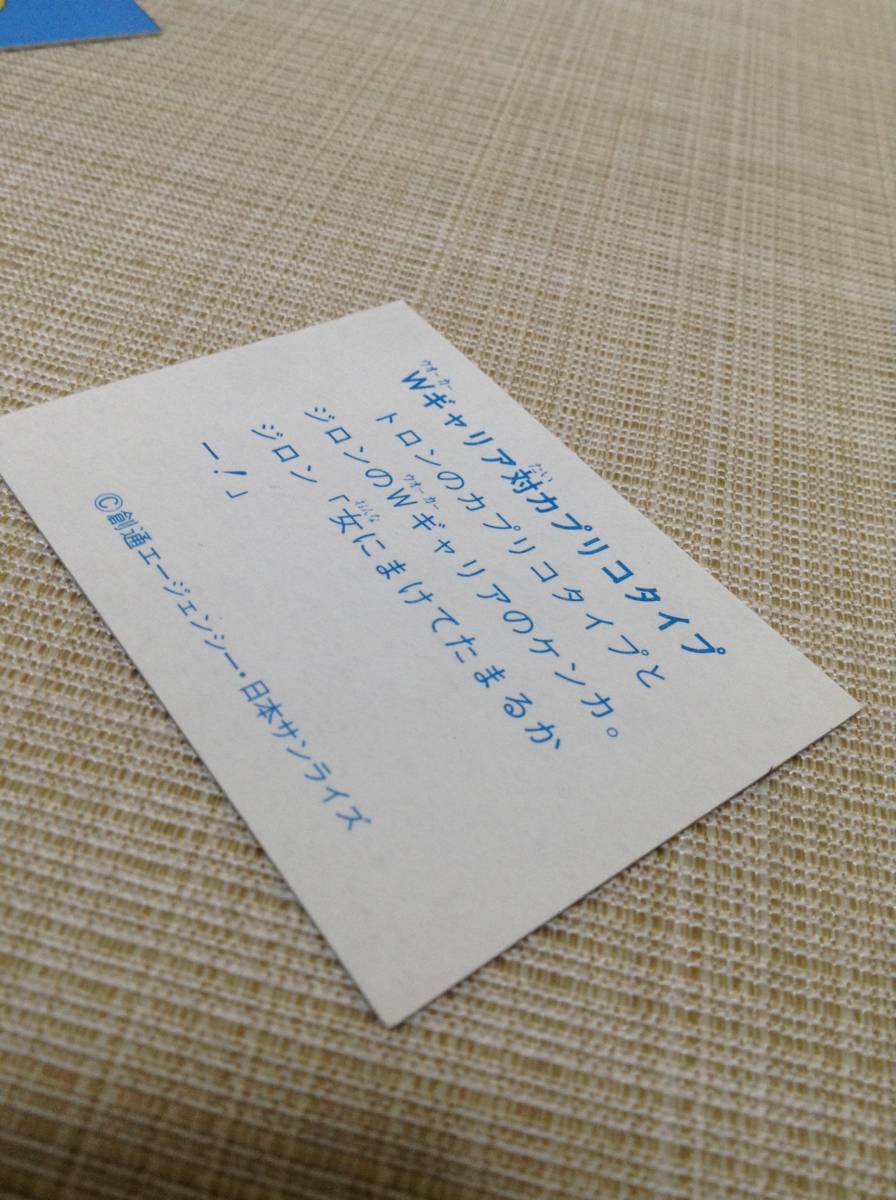 Wギャリア対カプリコタイプ
トロンのカプリコタイプと
ジロンのWギャリアのケンカ。
ジロン「女にまけてたまるか
ー!」
©創通エージェンシー・日本サンライズ